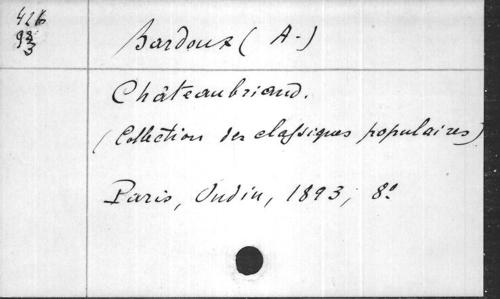 426
93
3
Bardoux (A-)
Châteaubriand.
(Collection des classiques populaires)
Paris, Oudin, 1893, 8°